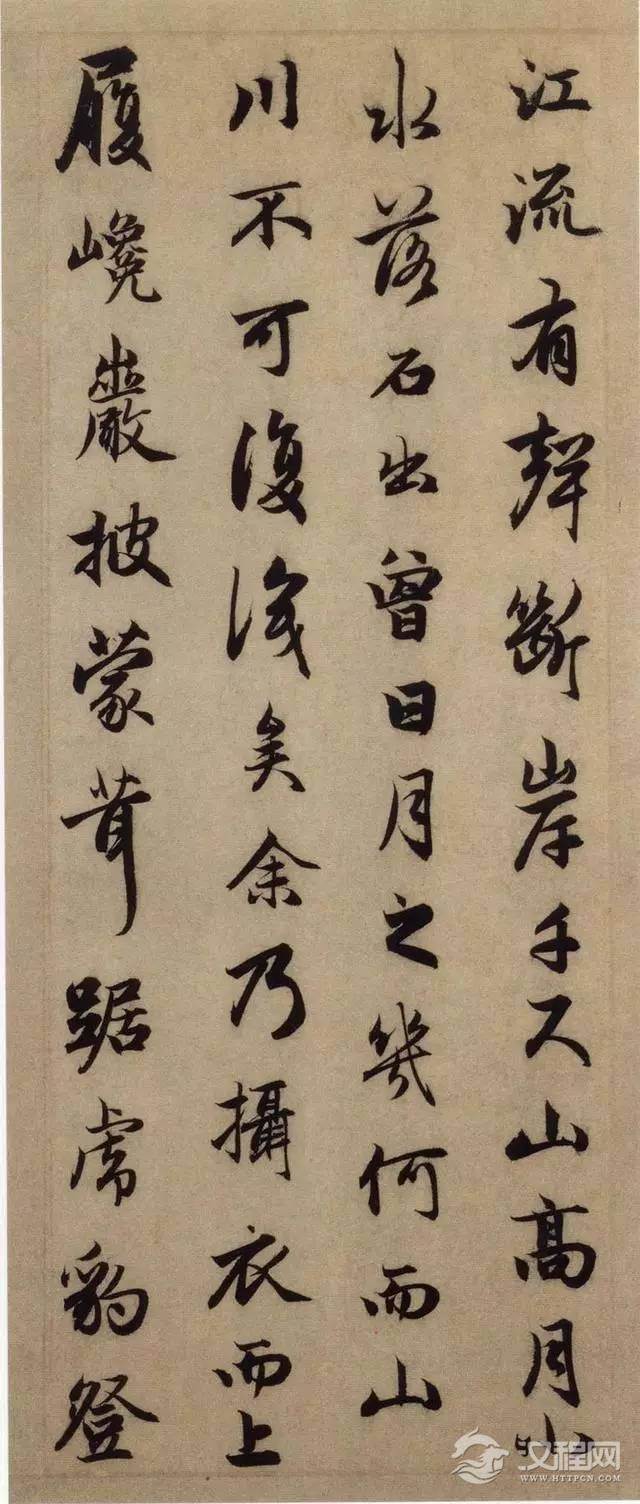 江流有聲斷岸千尺山高月小
水落石出曾日月之幾何而山
川不可復識矣余乃攝衣而上
履巉巖披蒙茸踞虎豹登
汉程网
WWW.HTTPCN.COM